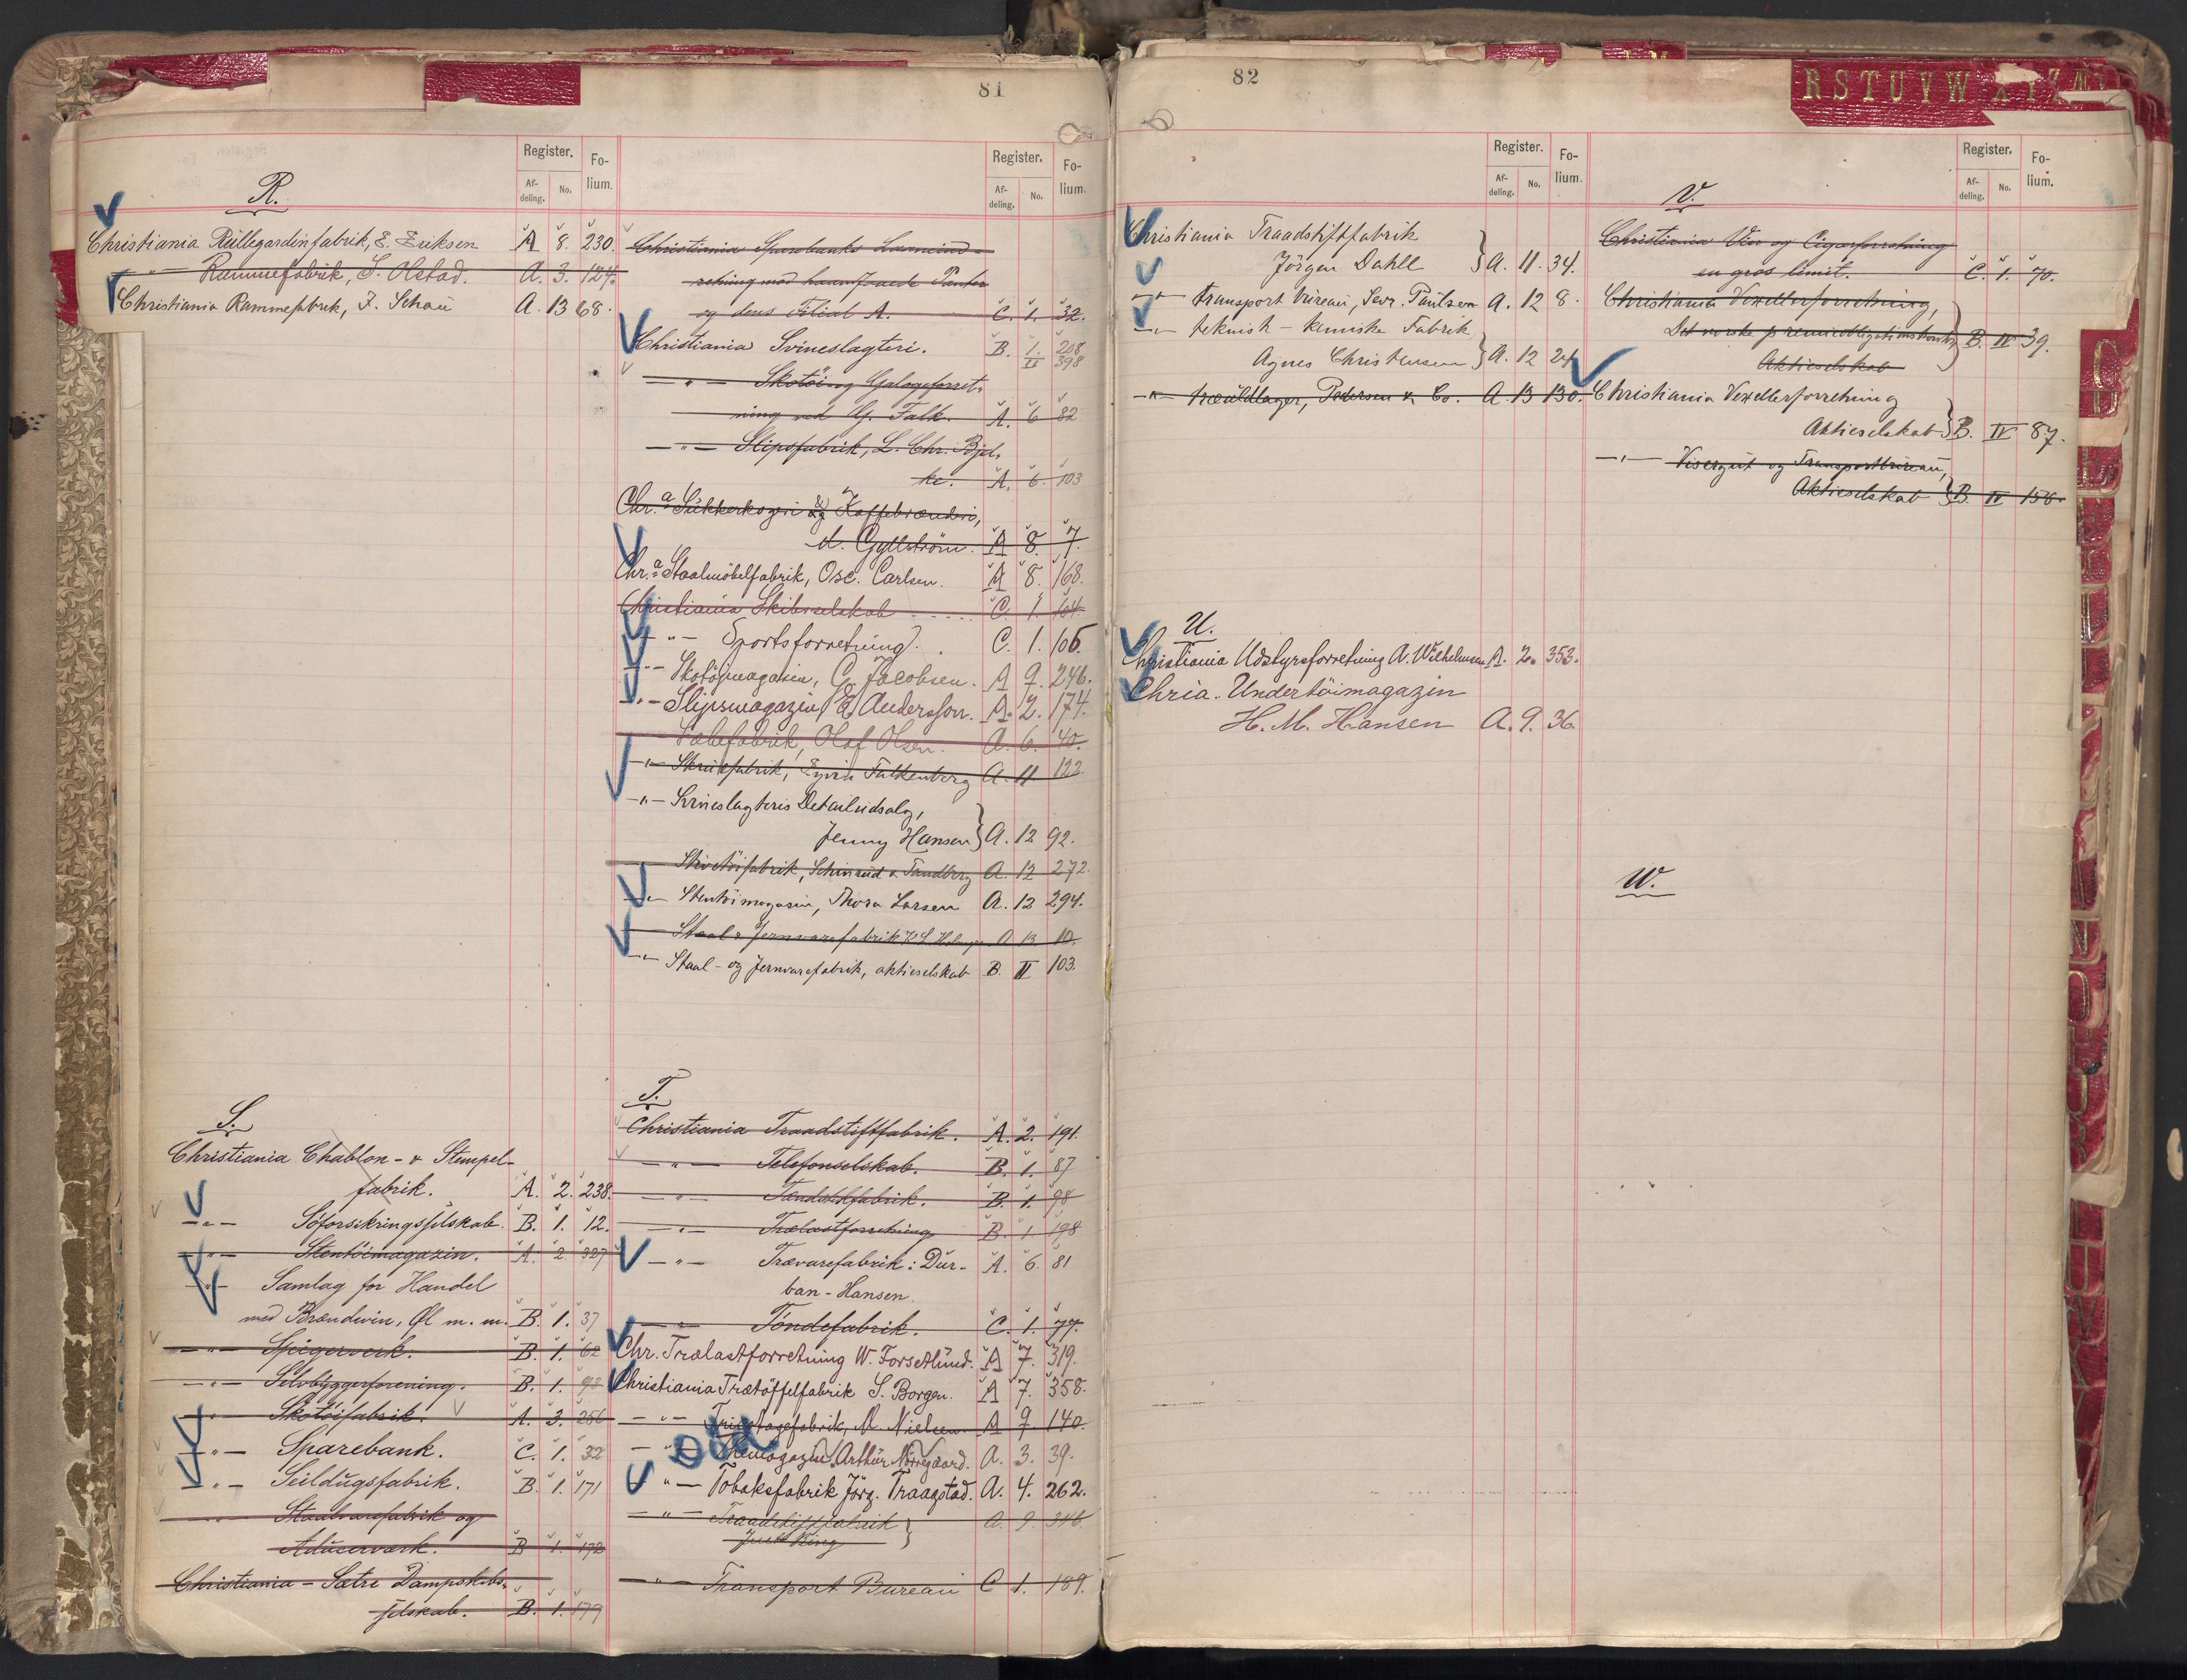 81
Register.
Fo-
lium.
Af-
deling.
No.
R.
Christiania Rullegardinfabrik, E. Eriksen A 8. 230.
-"- Rammefabrik, S. Olstad. A. 3. 124.
Christiania Rammefabrik, J. Schou A. 13 68.
S.
Christiania Chablon- & Stempel-
fabrik. A. 2. 238.
-"- Söforsikringsselskab. B. 1. 12.
-"- Stentöimagazin. A. 2. 327
-"- Samlag for Handel
med Brændevin, Øl m. m. B. 1. 37
-"- Spigerverk. B. 1. 62
-"- Selvbyggerforening. B. 1. 92
-"- Skotöifabrik. A. 3. 256
-"- Sparebank. C. 1. 32
-"- Seildugsfabrik. B. 1. 171
-"- Staalvarefabrik og
Aducerværk. B. 1. 172
Christiania-Sætre Dampskibs-
selskab. B. 1. 179
Register.
Fo-
lium.
Af-
deling.
No.
Christiania Sparebanks
retning mod haandfaaede Panter
og dens Filial A. C. 1. 32.
Christiania Svineslagteri. B. 1. 208
II 398
-"- Skotöi- og Galogeforret-
ning ved G. Falk. A. 6 82
-"- Slipsfabrik, L. Chr. Bjel-
ke. A. 6. 103
Chr.a Sukkerkogeri og Kaffebrænderi,
d. Gyllström. A 8. 7.
Chr.a Staalmöbelfabrik, Osc. Carlsen. A 8. 168.
Christiania Skibsselskab C. 1 104.
-"- Sportsforretning. C. 1. 105.
-"- Skotöimagasin, C. Jacobsen. A 9. 246.
-"- Slipsmagazin E. Andersson. A. 2. 174.
Sæbefabrik, Olof Olsen. A. 6. 40.
-"- Skruefabrik, Eyvin Falkenberg A. 11 122.
-"- Svineslagteris Detailudsalg,
Jenny Hansen A. 12 92.
Skivetöifabrik, Schinrud & Sandberg A. 12 272.
-"- Stentöimagasin, Thora Larsen A. 12 294.
Staal & Jernvarefabrik A 13 10.
-"- Staal- og Jernvarefabrik, aktieselskab B. II 103.
T.
Christiania Traadstiftfabrik. A. 2. 191.
-"- Telefonselskab. B. 1. 87
-"- Tændstikfabrik. B. 1. 98
-"- Trælastforretning B. 1 198
-"- Trævarefabrik: Dur- A. 6. 81
ban-Hansen.
-"- Töndefabrik. C. 1. 77.
Chr. Trælastforretning W. Forsetlund. A 7. 319.
Christiania Trætöffelfabrik S. Borgen. A 7. 358.
-"- Tricotagefabrik, M. Nielsen. A 9 140
-"- Themagazin Arthur Nörregaard. A. 3. 39.
-"- Tobaksfabrik Jörg. Traagstad. A. 4. 262.
-"- Traadstiftfabrik A. 9. 346.
Just Ring
-"- Transport Bureau C 1. 189.
82
Register.
Fo-
lium.
Af-
deling.
No.
Christiania Traadstiftfabrik
Jörgen Dahll A. 11. 34.
-"- transport bureau, Sevr. Paulsen A. 12 8.
-"- teknisk-kemiske Fabrik
Agnes Christensen A. 12 24
-"- træuldlager, Pedersen & Co. A. 13 130.
U.
Christiania Udstyrsforretning A. Wilhelmsen A. 2. 353.
Chria. Undertöimagazin
H. M. Hansen A. 9. 36.
RSTUVW XYZ
Register.
Fo-
lium.
Af-
deling.
No.
V.
Christiania Vin og Cigarforretning
en gros limit. C. 1. 70.
Christiania Vexellerforretning,
Det norske præmieobligationskontor B. IV 39.
Aktieselskab
Christiania Vexellerforretning
Aktieselskab B. IV 87.
-"- Visergut og Transportbureau,
Aktieselskab B. IV 156.
W.